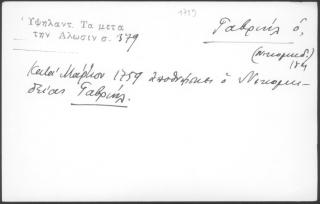 1759
Ὑψηλαντ. Τα μετα
την Αλωσιν σ. 379
Γαβριήλ ὁ,
(Νικομηδ.)
Κατὰ Μάρτιον 1759 ἀποθνήσκει ὁ Νικομη-
δείας Γαβριήλ.